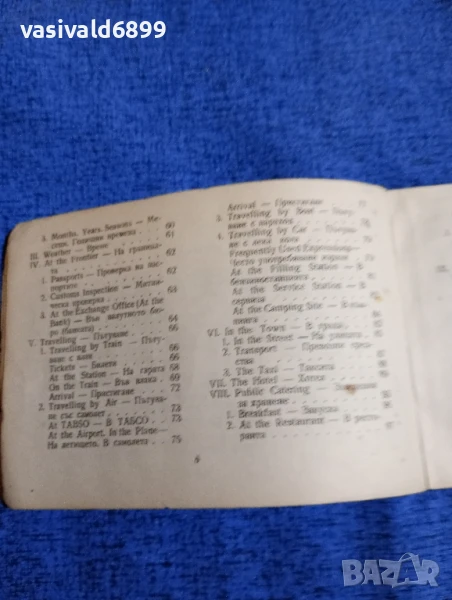 vasivald6899
3. Months. Years. Seasons — Ме-
сеци. Годишни времена . . 60
III. Weather — Време . . . . 61
IV. At the Frontier — На граница-
та . . . . . . . . 62
1. Passports — Проверка на пас-
портите . . . . . . . 62
2. Customs Inspection — Митни-
ческа проверка . . . . . 64
3. At the Exchange Office (At the
Bank) — Във валутното бю-
ро (банката) . . . . . . 64
V. Travelling — Пътуване . . . 66
1. Travelling by Train — Пъту-
ване с влак . . . . . . 66
Tickets — Билети . . . . 66
At the Station — На гарата 68
On the Train — Във влака . 69
Arrival — Пристигане . . . 72
2. Travelling by Air — Пътува-
не със самолет . . . . . 73
At TABSO — В ТАБСО . . . 73
At the Airport. In the Plane —
На летището. В самолета . . 75
Arrival — Пристигане
3. Travelling by Boat — Пъту-
ване с
4. Travelling by Car — Пътува-
не с лека кола
Frequently Used Expressions —
Често употребявани изрази
At the Filling Station — В
бензиностанцията
At the Service Station — В
сервиза
At the Camping Site — В къ-
мпинга
VI. In the Town — В града
1. In the Street — На улицата
2. Transport — Превозни сред-
ства
3. The Taxi — Таксита
VII. The Hotel — Хотел
VIII. Public Catering —
за хранене
1. Breakfast — Закуска
2. At the Restaurant — В рес-
торанта
BAZAR